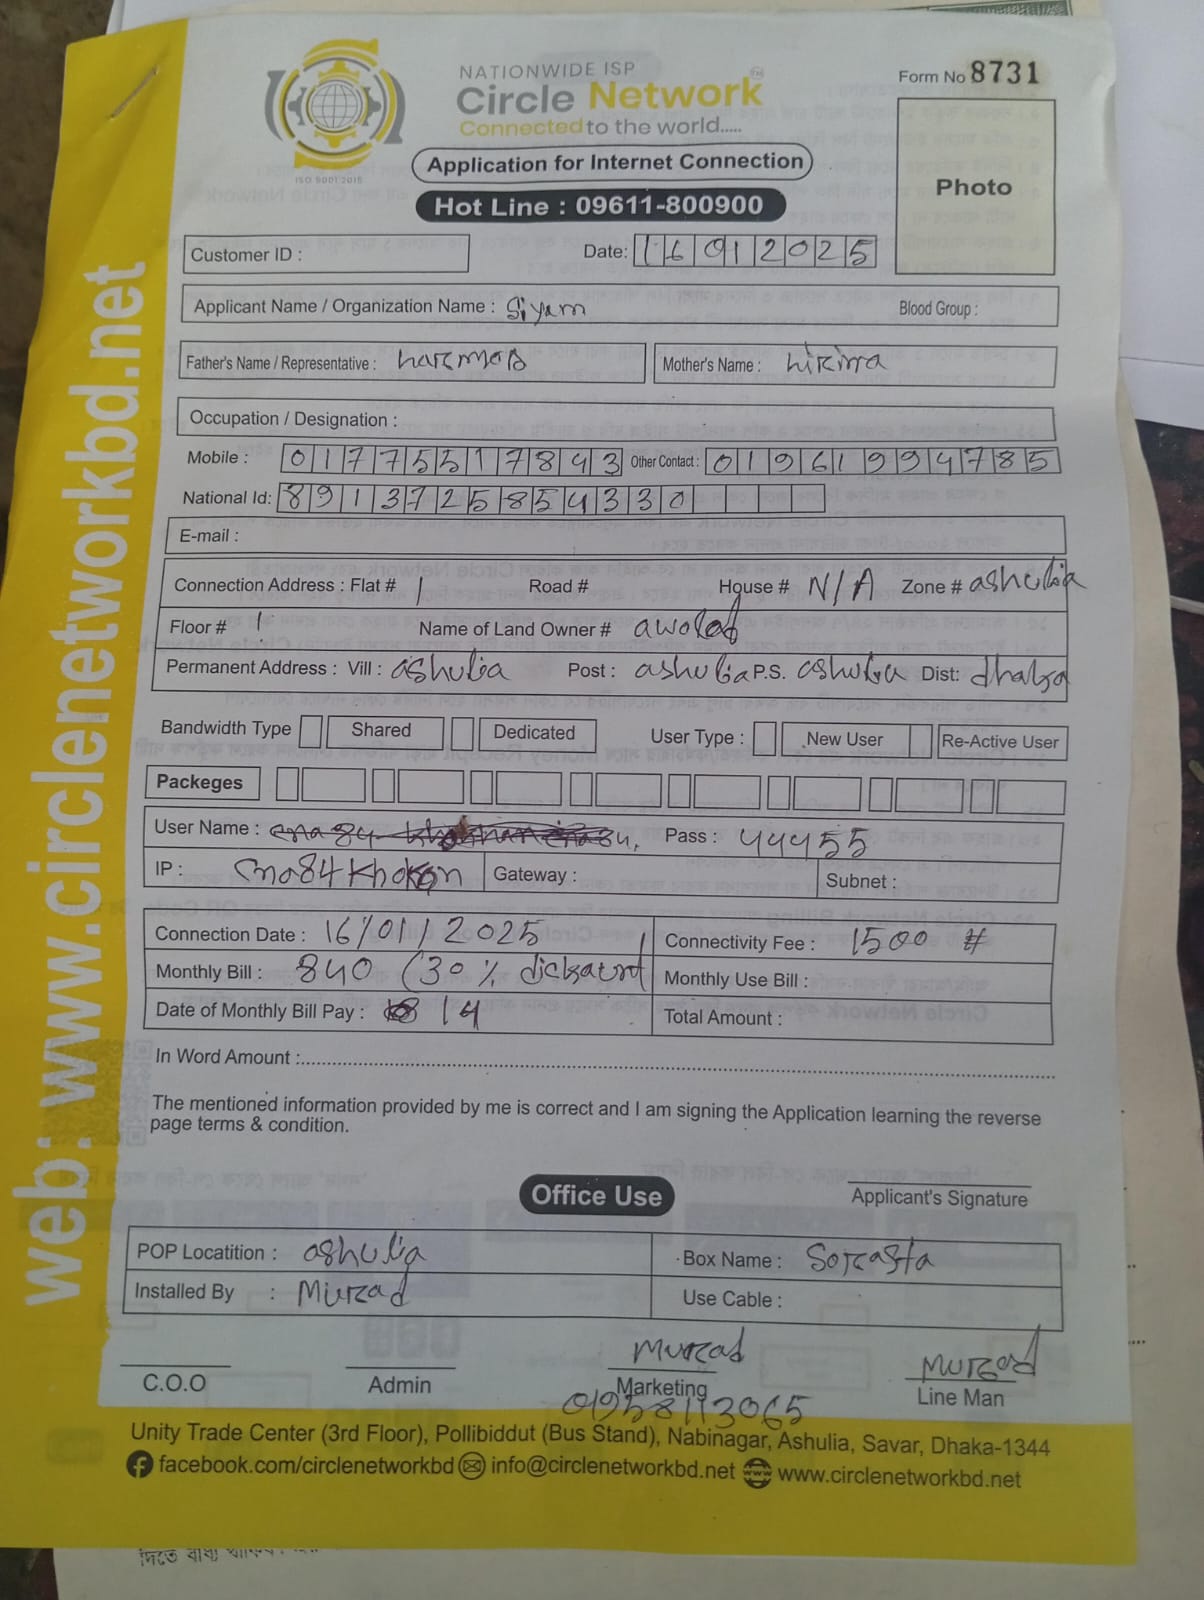 NATIONWIDE ISP
Circle Network™
Connected to the world.....
ISO 9001:2015
Form No 8731
Application for Internet Connection
Hot Line : 09611-800900
Photo
Customer ID :
Date: 16012025
Applicant Name / Organization Name : Siyam
Blood Group :
Father's Name / Representative :
Mother's Name :
Occupation / Designation :
Mobile : 01775517843 Other Contact : 01961994785
National Id: 8913725854330
E-mail :
Connection Address : Flat # 1 Road # House # N/A Zone # ashulia
Floor # 1 Name of Land Owner #
Permanent Address : Vill : ashulia Post : ashulia P.S. ashulia Dist: dhaka
Bandwidth Type Shared Dedicated User Type : New User Re-Active User
Packeges
User Name : Pass : 44455
IP : Gateway : Subnet :
Connection Date : 16/01/2025 Connectivity Fee : 1500 #
Monthly Bill : 840 (30% Monthly Use Bill :
Date of Monthly Bill Pay : 14 Total Amount :
In Word Amount :
The mentioned information provided by me is correct and I am signing the Application learning the reverse
page terms & condition.
Office Use
Applicant's Signature
POP Locatition : ashulia Box Name :
Installed By : Murad Use Cable :
Murad Murad
C.O.O Admin Marketing Line Man
01958113065
Unity Trade Center (3rd Floor), Pollibiddut (Bus Stand), Nabinagar, Ashulia, Savar, Dhaka-1344
facebook.com/circlenetworkbd info@circlenetworkbd.net www.circlenetworkbd.net
web: www.circlenetworkbd.net